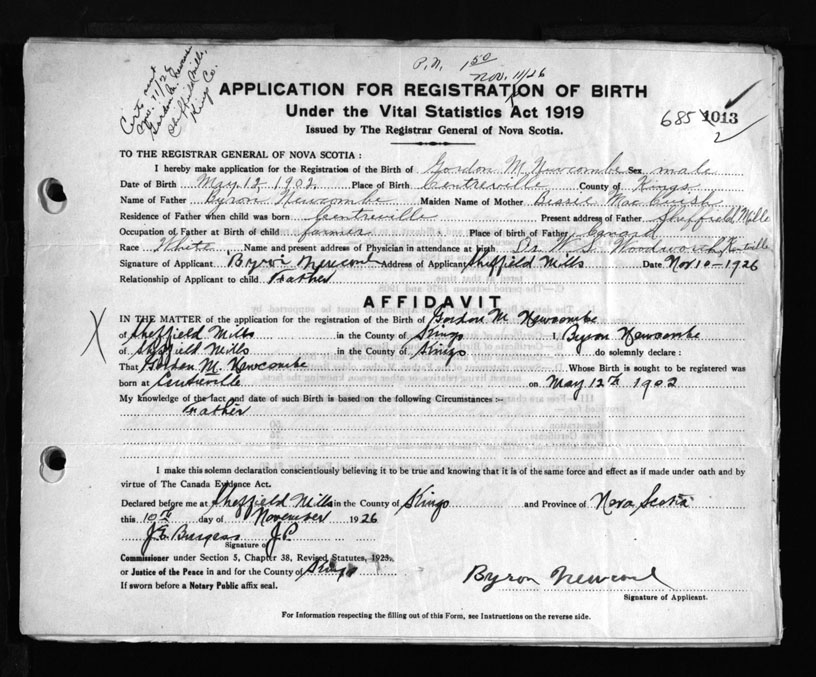 P.N. 1 50
Nov. 11/26
Certs sent
Nov. 11/26
Gordon M. Newcombe
Sheffield Mills,
Kings Co.
APPLICATION FOR REGISTRATION OF BIRTH
Under the Vital Statistics Act 1919
Issued by The Registrar General of Nova Scotia.
685 1013
2
TO THE REGISTRAR GENERAL OF NOVA SCOTIA :
I hereby make application for the Registration of the Birth of Gordon M. Newcombe Sex male
Date of Birth May 12 1902 Place of Birth Centreville County of Kings
Name of Father Byron Newcombe Maiden Name of Mother Bessie
Residence of Father when child was born Centreville Present address of Father Sheffield Mills
Occupation of Father at Birth of child farmer Place of birth of Father Canard
Race White Name and present address of Physician in attendance at birth Dr. W. S. Woodworth Kentville
Signature of Applicant Byron Newcomb Address of Applicant Sheffield Mills Date Nov 10 - 1926
Relationship of Applicant to child Father
AFFIDAVIT
X
IN THE MATTER of the application for the registration of the Birth of Gordon M. Newcombe
of Sheffield Mills in the County of Kings I, Byron Newcombe
of Sheffield Mills in the County of Kings do solemnly declare :
That Gordon M. Newcombe Whose Birth is sought to be registered was
born at Centreville on May 12th 1902
My knowledge of the fact and date of such Birth is based on the following Circumstances :-
Father
I make this solemn declaration conscientiously believing it to be true and knowing that it is of the same force and effect as if made under oath and by
virtue of The Canada Evidence Act.
Declared before me at Sheffield Mills in the County of Kings and Province of Nova Scotia
this 10th day of November 1926
J. E. Burgess J.P.
Signature of
Commissioner under Section 5, Chapter 38, Revised Statutes, 1923,
or Justice of the Peace in and for the County of Kings
If sworn before a Notary Public affix seal.
Byron Newcomb
Signature of Applicant.
For Information respecting the filling out of this Form, see Instructions on the reverse side.